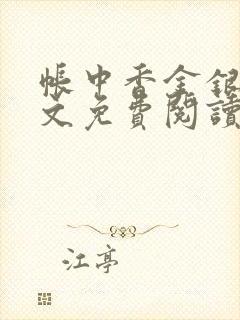 帳中香金銀
文免費閱讀
江亭